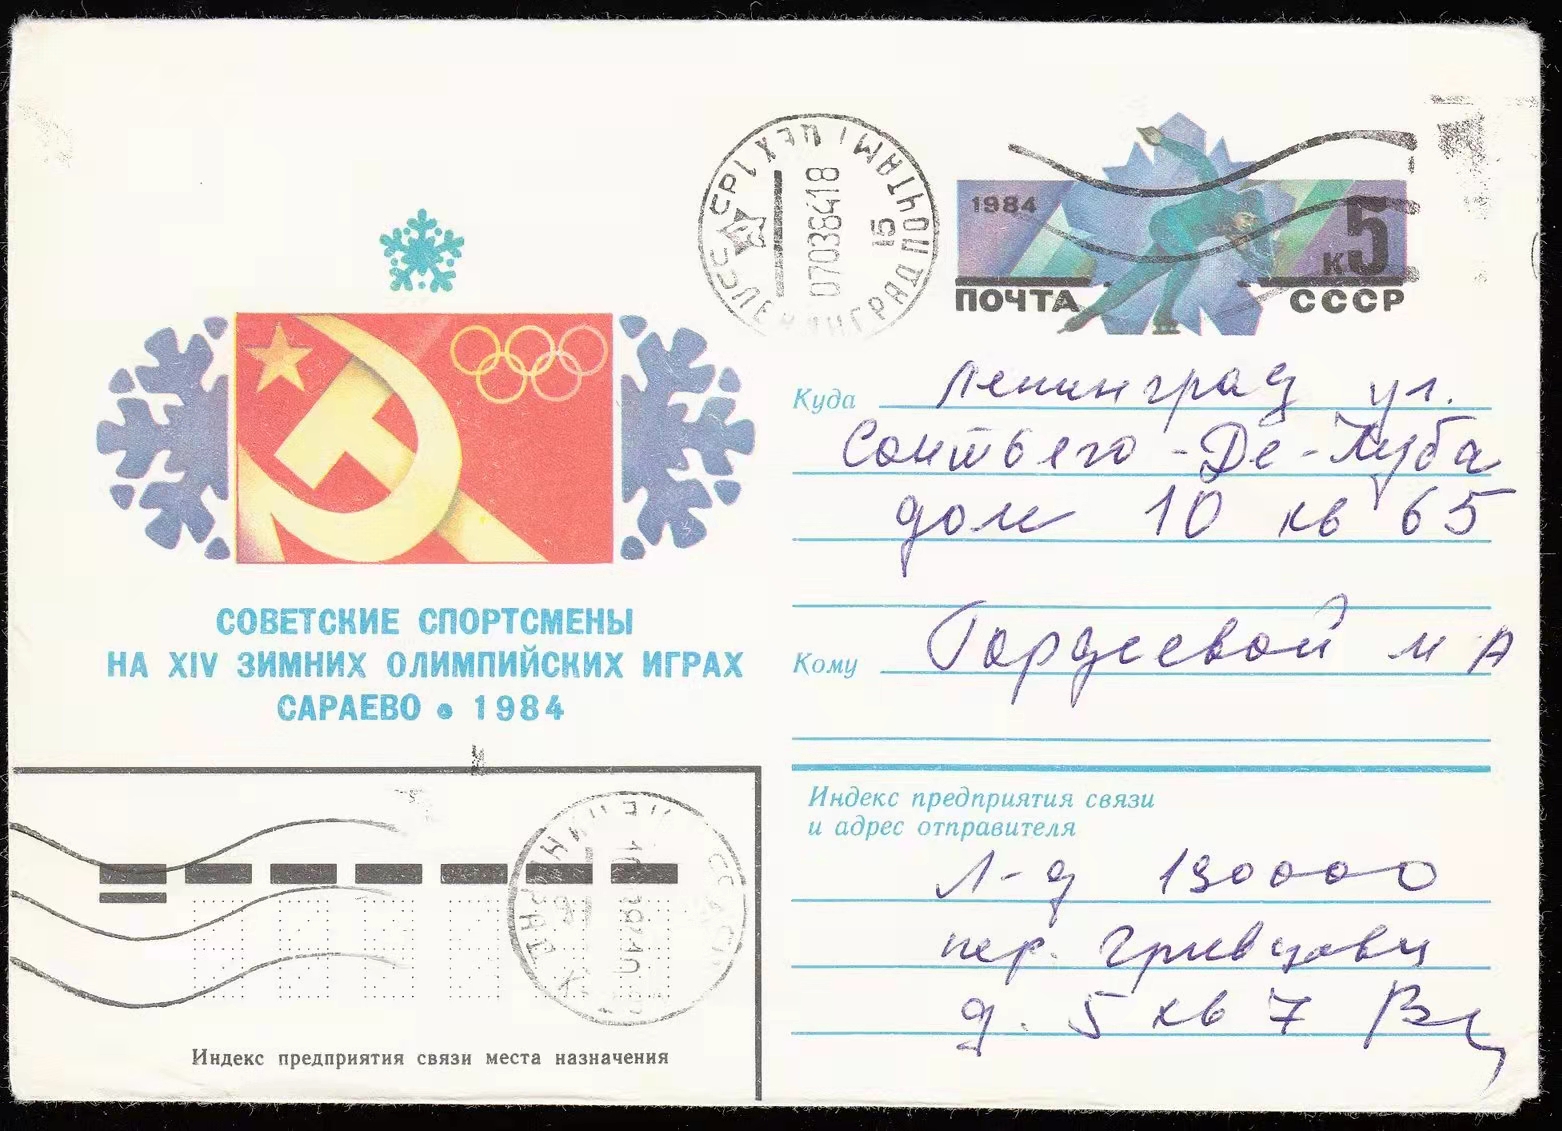 ЛЕНИНГРАД ПОЧТАМТ ЦЕХ 1
07038418
15
1984
к5
ПОЧТА СССР
СОВЕТСКИЕ СПОРТСМЕНЫ
НА XIV ЗИМНИХ ОЛИМПИЙСКИХ ИГРАХ
САРАЕВО • 1984
Куда Ленинград ул.
Сантьяго-Де-Куба
дом 10 кв 65
Кому Гордеевой М А
Индекс предприятия связи
и адрес отправителя
Л-д 190000
пер. Гривцова
д. 5 кв 7
Индекс предприятия связи места назначения